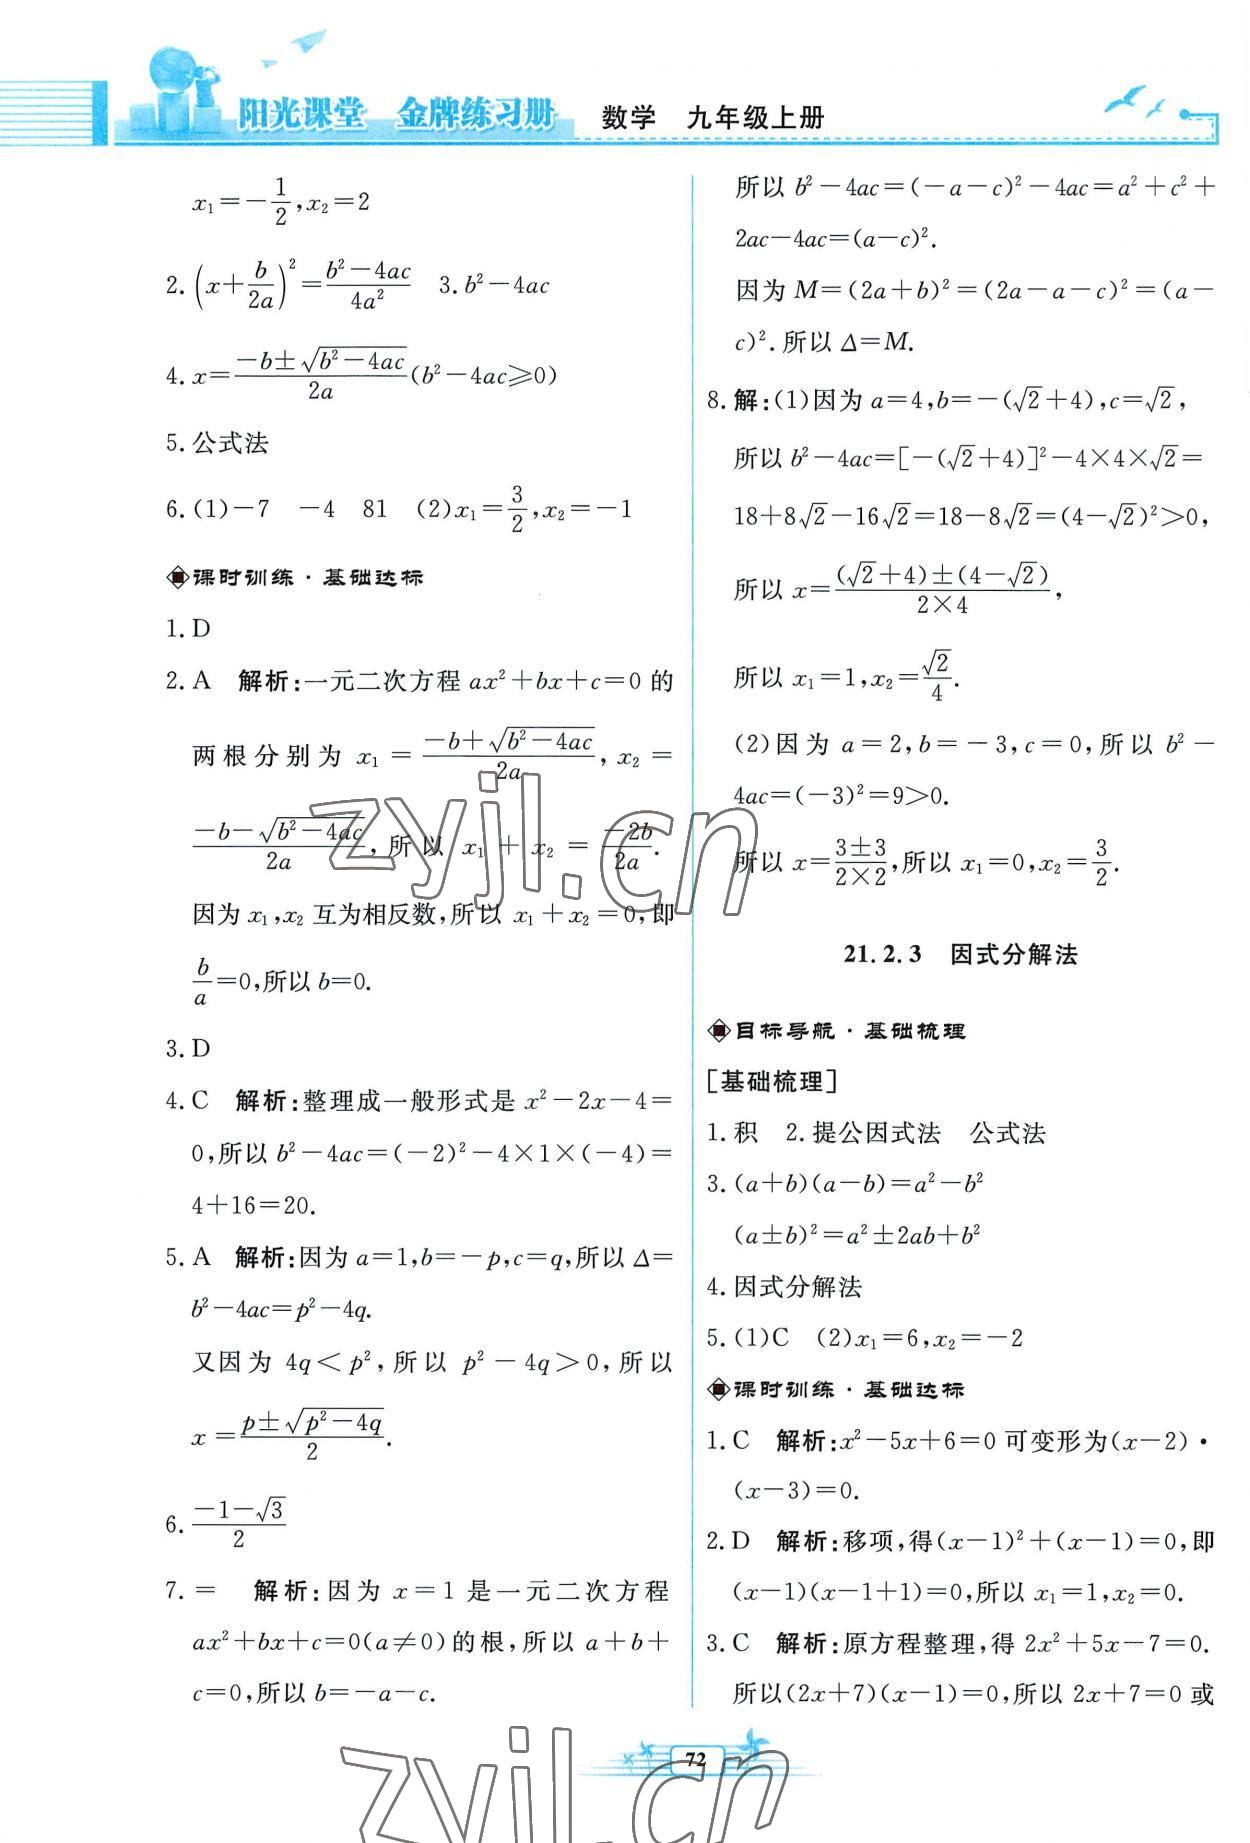 阳光课堂 金牌练习册 数学 九年级上册
x₁=-1/2,x₂=2
2.(x+b/2a)²=(b²-4ac)/4a² 3.b²-4ac
4.x=(-b±√(b²-4ac))/2a(b²-4ac≥0)
5.公式法
6.(1)-7 -4 81 (2)x₁=3/2,x₂=-1
课时训练·基础达标
1.D
2.A 解析:一元二次方程 ax²+bx+c=0 的
两根分别为 x₁=(-b+√(b²-4ac))/2a,x₂=
(-b-√(b²-4ac))/2a,所以 x₁+x₂=-2b/2a.
因为 x₁,x₂ 互为相反数,所以 x₁+x₂=0,即
b/a=0,所以 b=0.
3.D
4.C 解析:整理成一般形式是 x²-2x-4=
0,所以 b²-4ac=(-2)²-4×1×(-4)=
4+16=20.
5.A 解析:因为 a=1,b=-p,c=q,所以 Δ=
b²-4ac=p²-4q.
又因为 4q<p²,所以 p²-4q>0,所以
x=(p±√(p²-4q))/2.
6.(-1-√3)/2
7.= 解析:因为 x=1 是一元二次方程
ax²+bx+c=0(a≠0)的根,所以 a+b+
c=0,所以 b=-a-c.
所以 b²-4ac=(-a-c)²-4ac=a²+c²+
2ac-4ac=(a-c)².
因为 M=(2a+b)²=(2a-a-c)²=(a-
c)².所以 Δ=M.
8.解:(1)因为 a=4,b=-(√2+4),c=√2,
所以 b²-4ac=[-(√2+4)]²-4×4×√2=
18+8√2-16√2=18-8√2=(4-√2)²>0,
所以 x=((√2+4)±(4-√2))/(2×4),
所以 x₁=1,x₂=√2/4.
(2)因为 a=2,b=-3,c=0,所以 b²-
4ac=(-3)²=9>0.
所以 x=(3±3)/(2×2),所以 x₁=0,x₂=3/2.
21.2.3 因式分解法
目标导航·基础梳理
[基础梳理]
1.积 2.提公因式法 公式法
3.(a+b)(a-b)=a²-b²
(a±b)²=a²±2ab+b²
4.因式分解法
5.(1)C (2)x₁=6,x₂=-2
课时训练·基础达标
1.C 解析:x²-5x+6=0 可变形为(x-2)·
(x-3)=0.
2.D 解析:移项,得(x-1)²+(x-1)=0,即
(x-1)(x-1+1)=0,所以 x₁=1,x₂=0.
3.C 解析:原方程整理,得 2x²+5x-7=0.
所以(2x+7)(x-1)=0,所以 2x+7=0 或
72
zyjl.cn
zyjl.cn